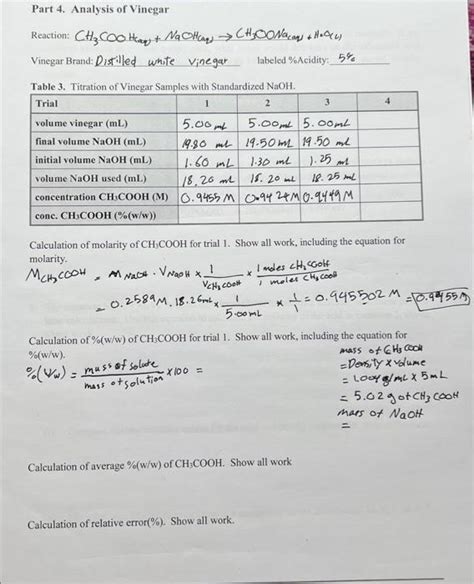 Part 4. Analysis of Vinegar
Reaction: CH3COOH(aq) + NaOH(aq) → CH3OONa(aq) + H2O(l)
Vinegar Brand: Distilled white vinegar labeled %Acidity: 5%
Table 3. Titration of Vinegar Samples with Standardized NaOH.
Trial 1 2 3 4
volume vinegar (mL) 5.00 mL 5.00mL 5.00mL
final volume NaOH (mL) 19.80 mL 19.50mL 19.50 mL
initial volume NaOH (mL) 1.60 mL 1.30 mL 1.25 mL
volume NaOH used (mL) 18.20 mL 18.20 mL 18.25 mL
concentration CH3COOH (M) 0.9455M 0.9424M 0.9449M
conc. CH3COOH (%(w/w))
Calculation of molarity of CH3COOH for trial 1. Show all work, including the equation for
molarity.
MCH3COOH = M NaOH · VNaOH × 1/VCH3COOH × 1 moles CH3COOH/1 moles CH3COOH
= 0.2589M · 18.26mL × 1/5.00mL × 1/1 = 0.945502 M = 0.9455M
Calculation of %(w/w) of CH3COOH for trial 1. Show all work, including the equation for
%(w/w).
%(w/w) = mass of solute/mass of solution ×100 =
mass of CH3COOH
= Density × volume
= 1.004 g/mL × 5mL
= 5.02g of CH3COOH
mars of NaOH
=
Calculation of average %(w/w) of CH3COOH. Show all work
Calculation of relative error(%). Show all work.